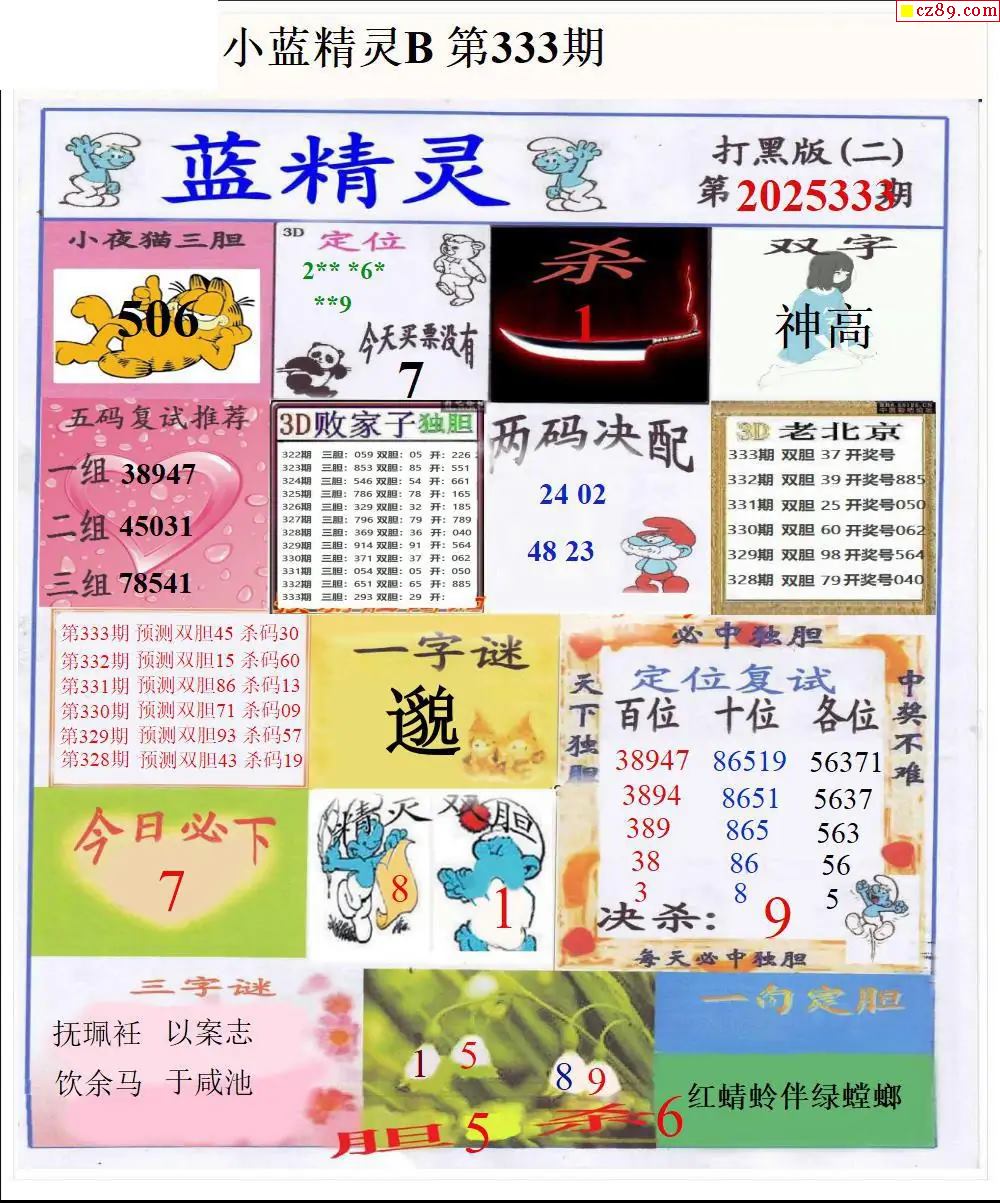 cz89.com
小蓝精灵B 第333期
蓝精灵
打黑版(二)
第2025333期
小夜猫三胆
506
3D 定位
2** *6*
**9
今天买票没有
7
杀
1
双字
神高
五码复试推荐
一组 38947
二组 45031
三组 78541
3D败家子独胆
322期 三胆：059 双胆：05 开：226
323期 三胆：853 双胆：85 开：551
324期 三胆：546 双胆：54 开：661
325期 三胆：786 双胆：78 开：165
326期 三胆：329 双胆：32 开：185
327期 三胆：796 双胆：79 开：789
328期 三胆：369 双胆：36 开：040
329期 三胆：914 双胆：91 开：564
330期 三胆：371 双胆：37 开：062
331期 三胆：054 双胆：05 开：050
332期 三胆：651 双胆：65 开：885
333期 三胆：293 双胆：29 开：
两码决配
24 02
48 23
3D 老北京
333期 双胆 37 开奖号
332期 双胆 39 开奖号885
331期 双胆 25 开奖号050
330期 双胆 60 开奖号062
329期 双胆 98 开奖号564
328期 双胆 79 开奖号040
第333期 预测双胆45 杀码30
第332期 预测双胆15 杀码60
第331期 预测双胆86 杀码13
第330期 预测双胆71 杀码09
第329期 预测双胆93 杀码57
第328期 预测双胆43 杀码19
一字谜
邈
必中独胆
天下独胆
中奖不难
定位复试
百位 十位 各位
38947 86519 56371
3894 8651 5637
389 865 563
38 86 56
3 8 5
决杀： 9
每天必中独胆
今日必下
7
精灵 双胆
8 1
三字谜
抚珮衽 以案志
饮余马 于咸池
1 5 8 9
胆 5 杀 6
一句定胆
红蜻蛉伴绿螳螂